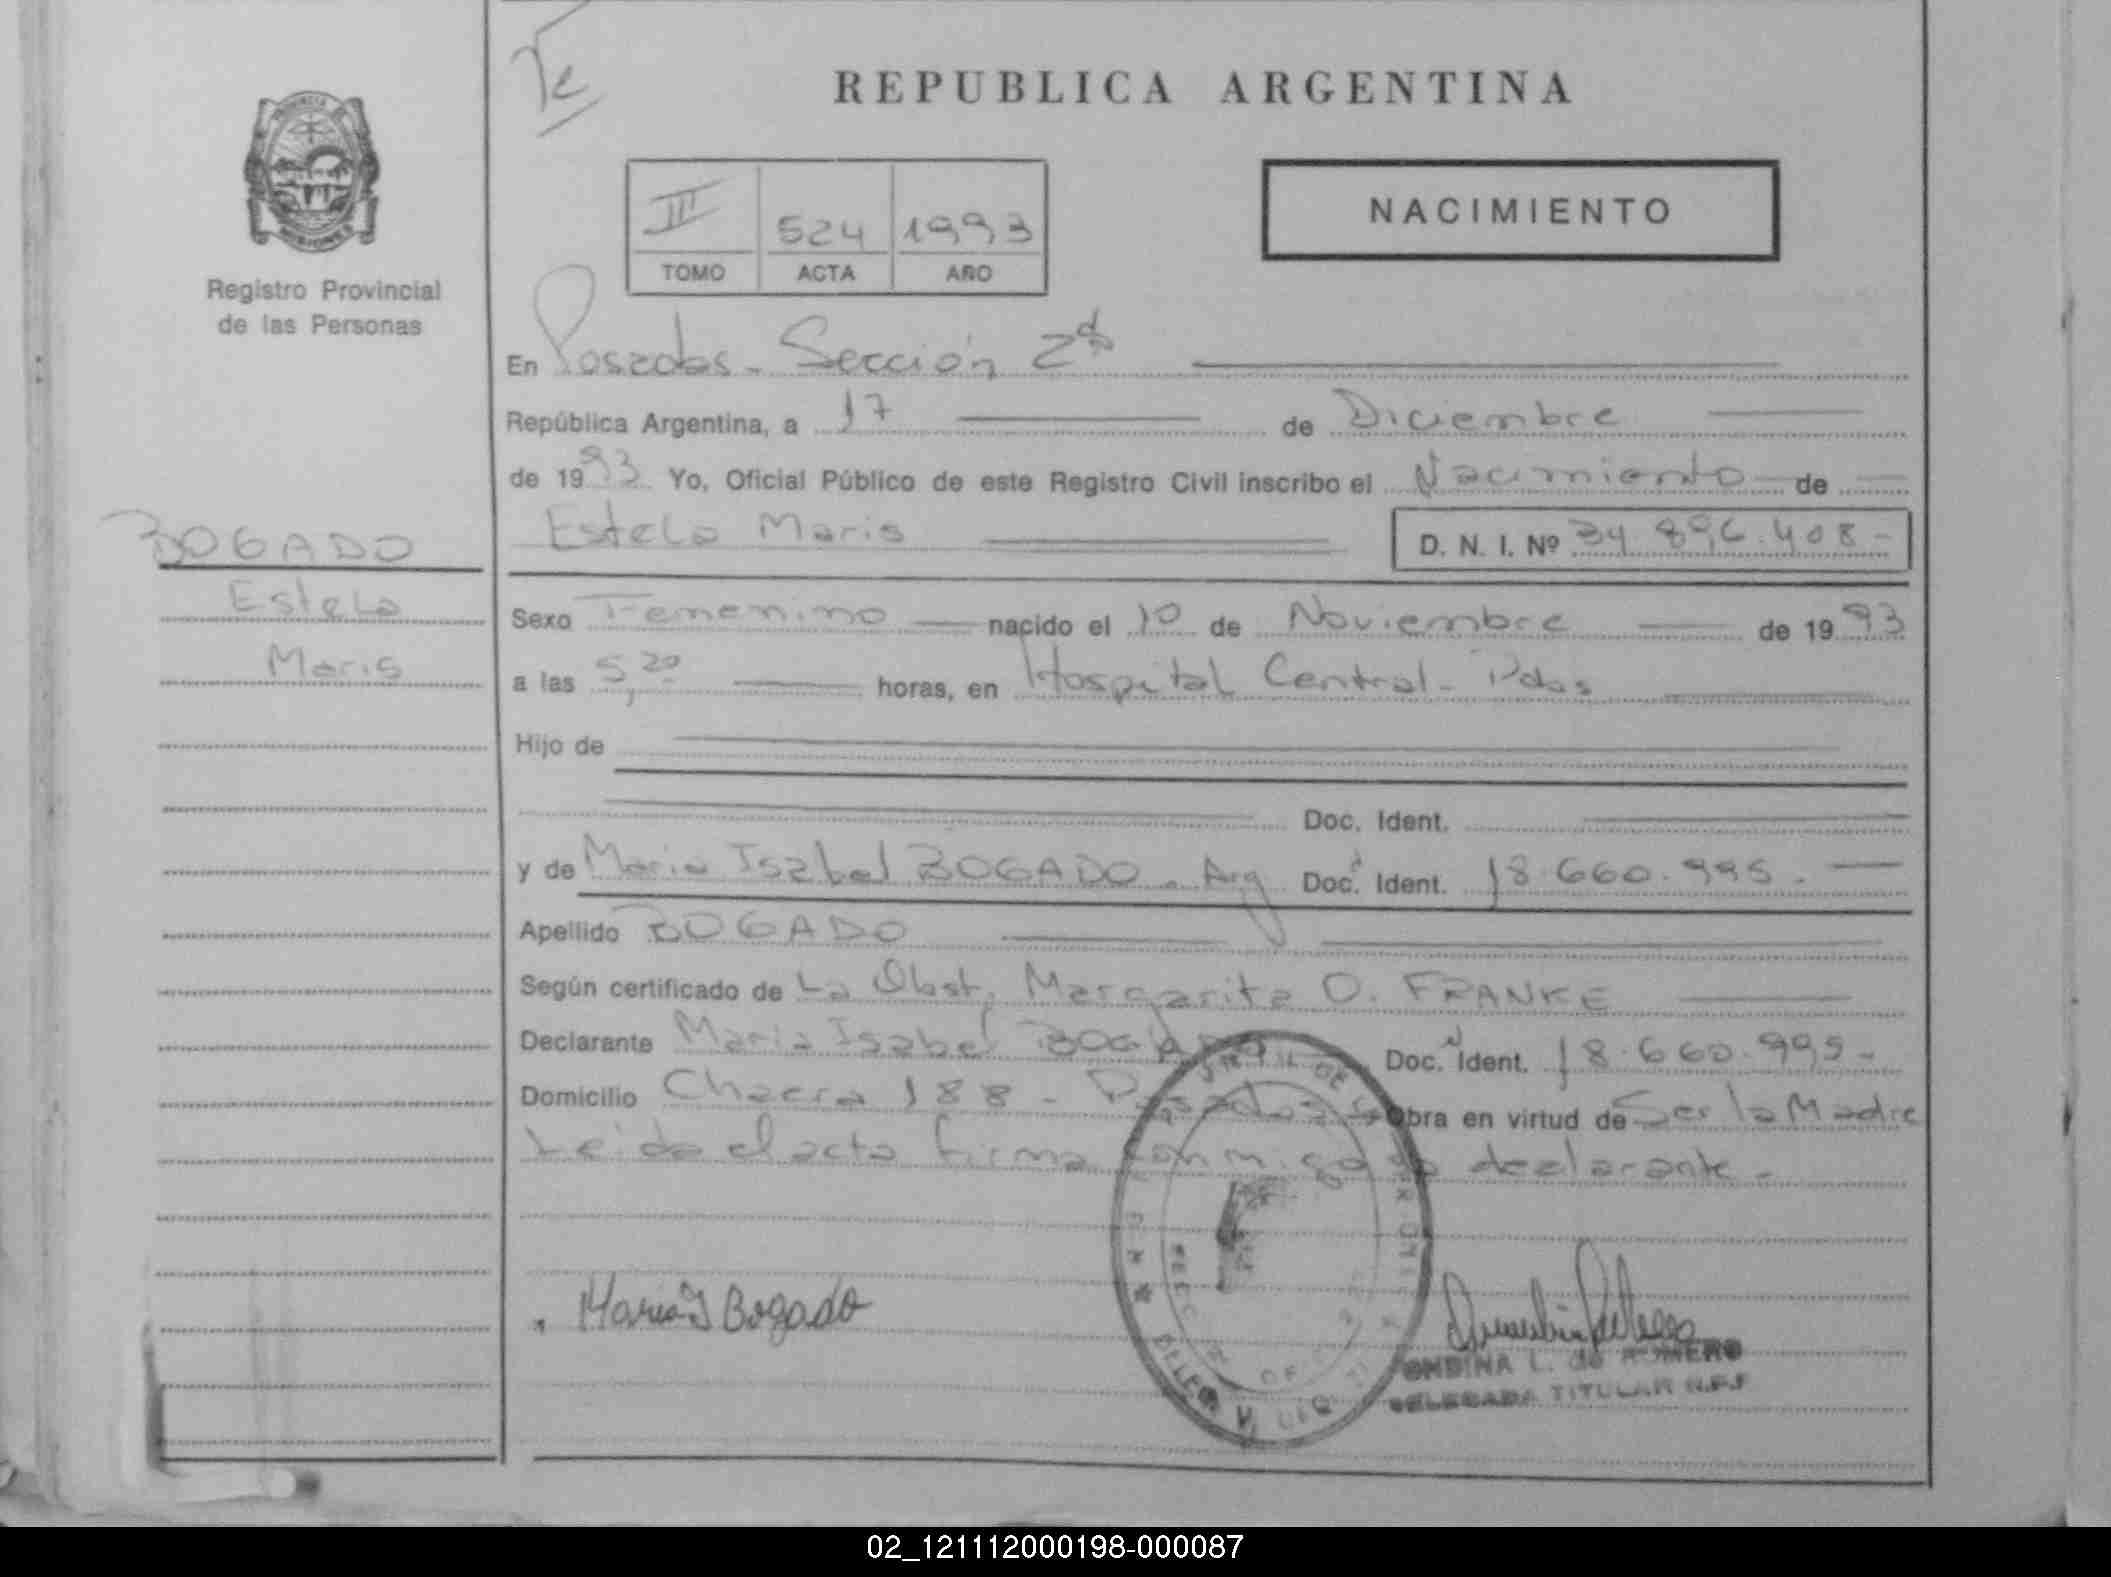 REPUBLICA ARGENTINA
III 524 1993
TOMO ACTA AÑO
NACIMIENTO
Registro Provincial
de las Personas
En Posadas - Sección 2da
República Argentina, a 17 de Diciembre
de 1993 Yo, Oficial Público de este Registro Civil inscribo el Nacimiento de
Estela Maris D. N. I. Nº 34.896.408-
BOGADO
Estela
Maris
Sexo Femenino nacido el 10 de Noviembre de 1993
a las 5,20 horas, en Hospital Central - Pdas
Hijo de
Doc. Ident.
y de Maria Isabel BOGADO - Arg Doc. Ident. 18.660.995.
Apellido BOGADO
Según certificado de La Obst, Margarita O. FRANKE
Declarante Maria Isabel BOGADO Doc. Ident. 18.660.995-
Domicilio Chacra 188 - Posadas Obra en virtud de Ser la Madre
Leida el acta firma conmigo la declarante -
Maria I Bogado
ONDINA L. de ROMERO
DELEGADA TITULAR
02_121112000198-000087